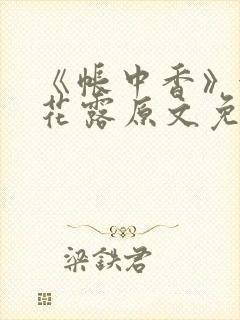 《帐中香》
花露原文免
梁铁君